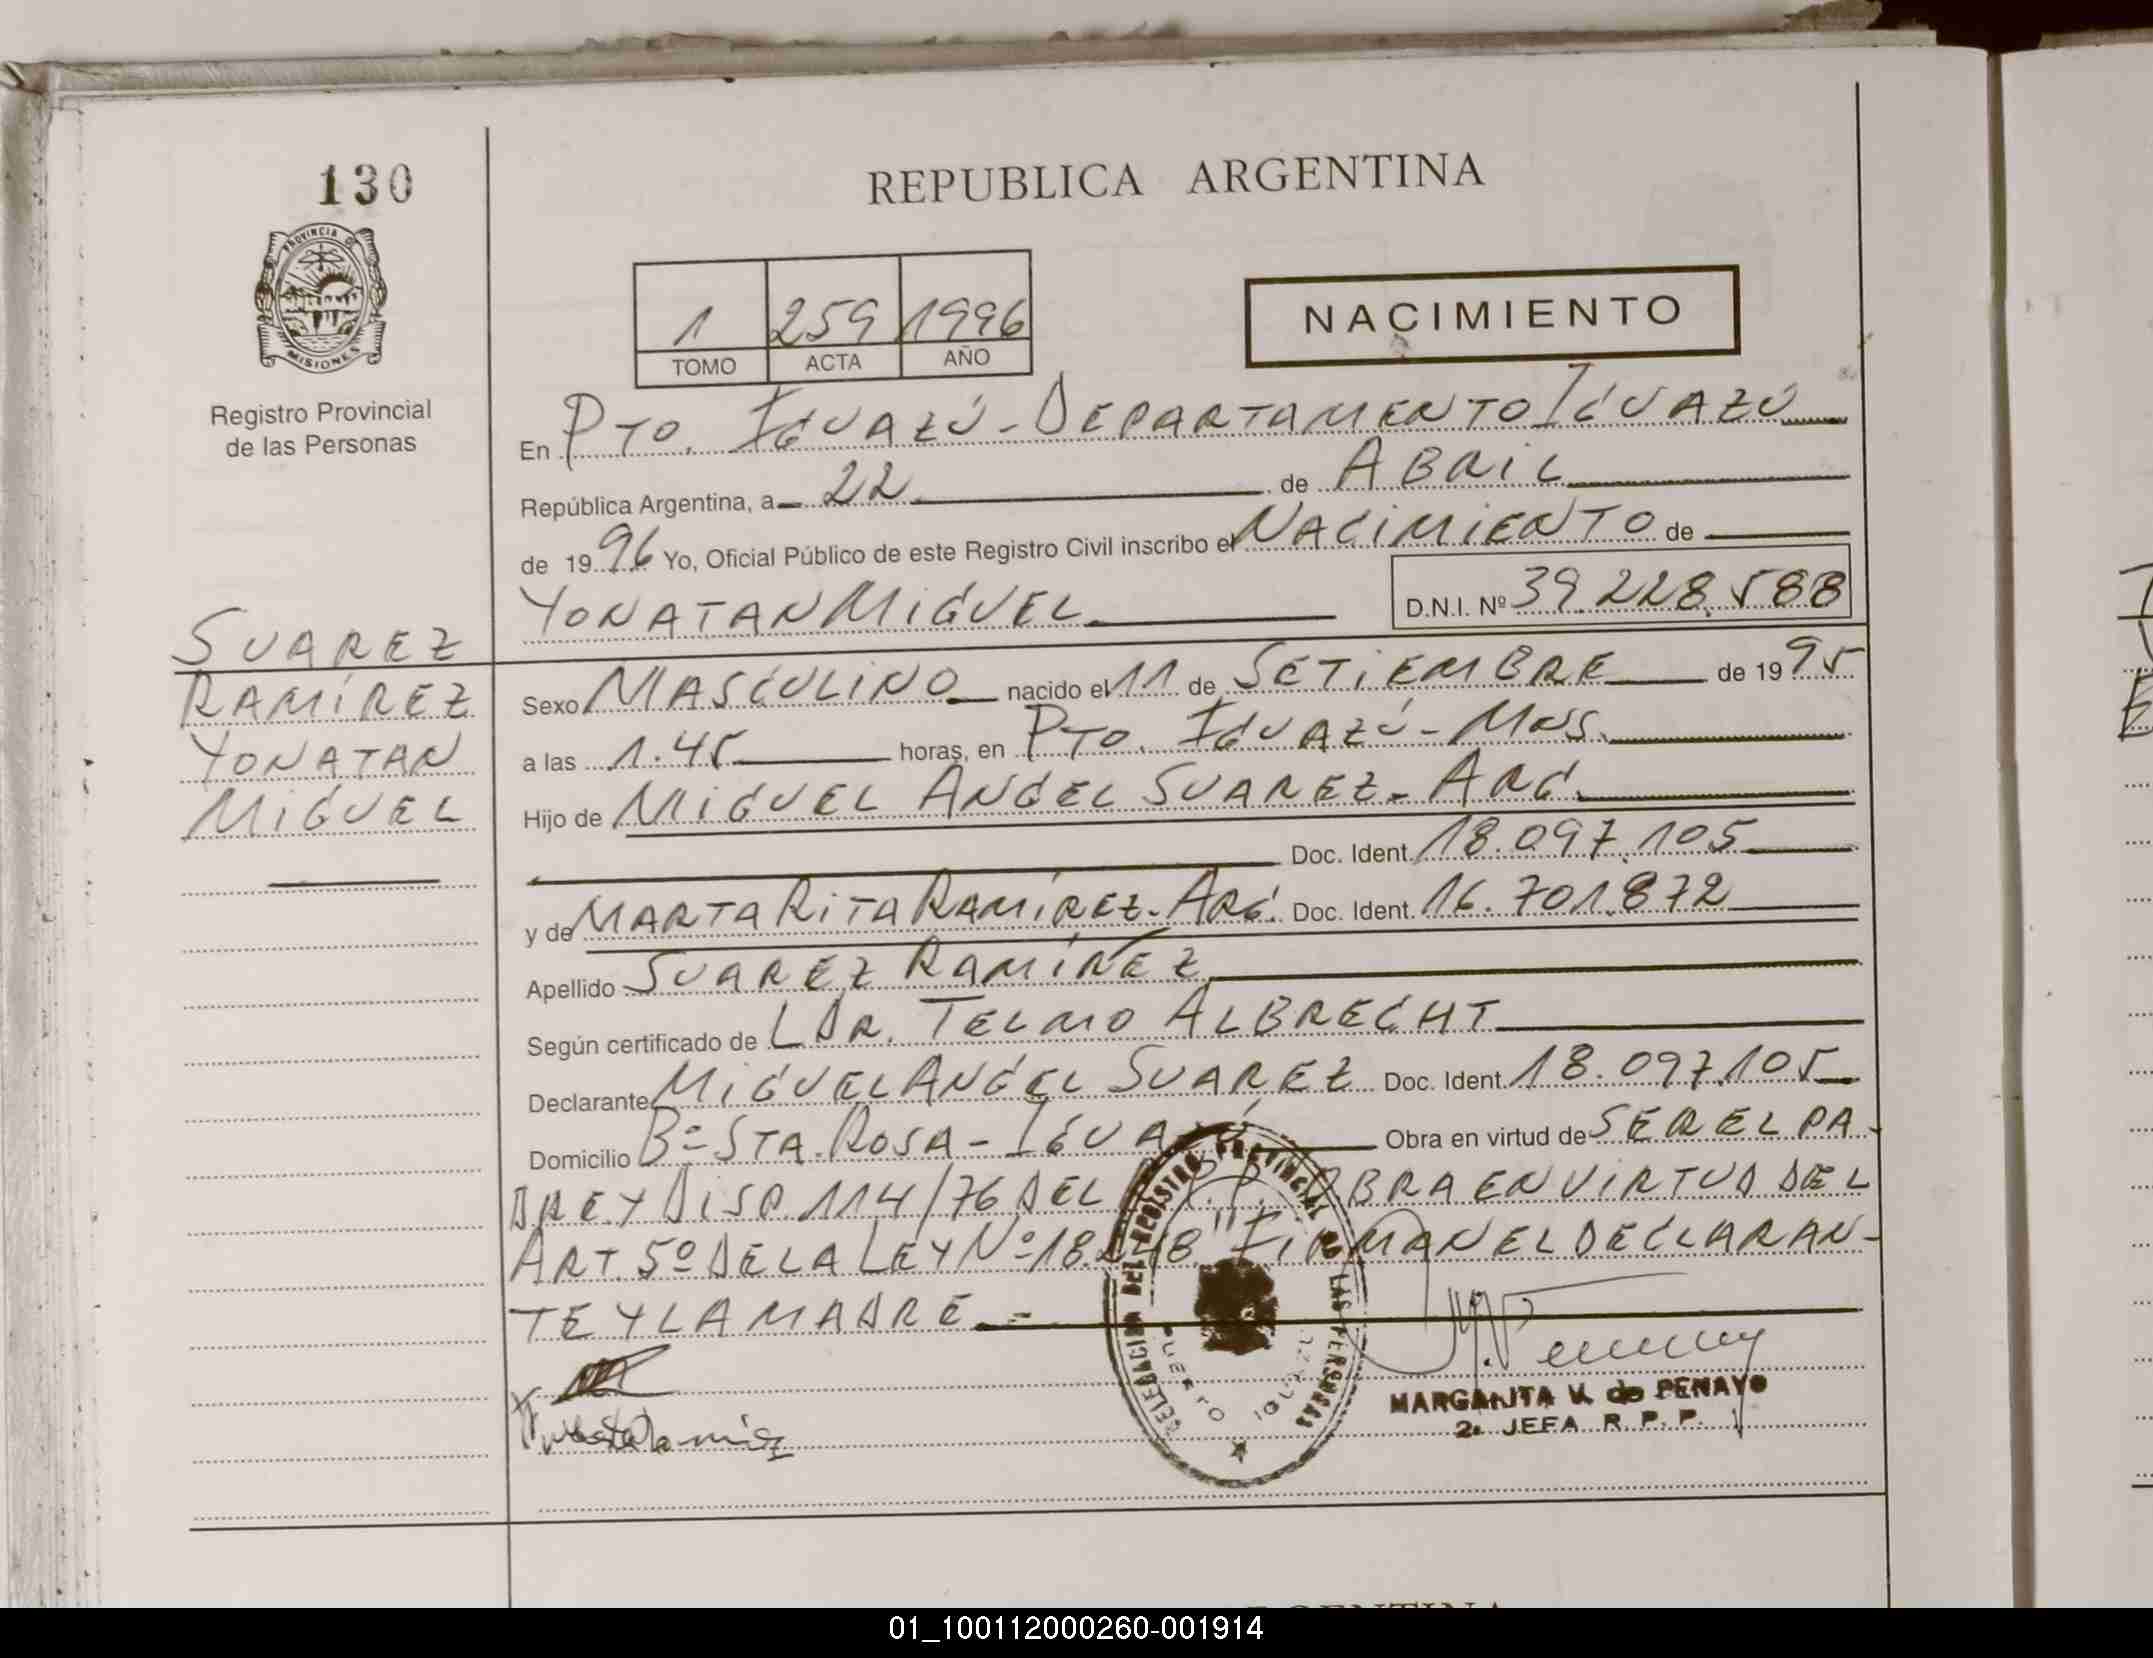 130
PROVINCIA DE
MISIONES
Registro Provincial
de las Personas
SUAREZ
RAMÍREZ
YONATAN
MIGUEL
REPUBLICA ARGENTINA
1 259 1996
TOMO ACTA AÑO
NACIMIENTO
En PTO. IGUAZÚ - DEPARTAMENTO IGUAZÚ
República Argentina, a 22 de ABRIL
de 1996 Yo, Oficial Público de este Registro Civil inscribo el NACIMIENTO de
YONATAN MIGUEL D.N.I. Nº 39.228.588
Sexo MASCULINO nacido el 11 de SETIEMBRE de 1995
a las 1.45 horas, en PTO. IGUAZÚ - MNS.
Hijo de MIGUEL ANGEL SUAREZ - ARG.
Doc. Ident. 18.097.105
y de MARTA RITA RAMÍREZ - ARG. Doc. Ident. 16.701.872
Apellido SUAREZ RAMÍREZ
Según certificado de L DR. TELMO ALBRECHT
Declarante MIGUEL ANGEL SUAREZ Doc. Ident. 18.097.105
Domicilio Bº STA. ROSA - IGUAZÚ Obra en virtud de SER EL PA-
DRE Y DISP. 114/76 DEL R.P.P. OBRA EN VIRTUD DEL
ART. 5º DE LA LEY Nº 18.248" FIRMAN EL DECLARAN-
TE Y LA MADRE. -
DELEGACION DEL REGISTRO PROVINCIAL DE LAS PERSONAS
PUERTO IGUAZU
MARGARITA V. de PENAYO
2a. JEFA R. P. P.
01_100112000260-001914